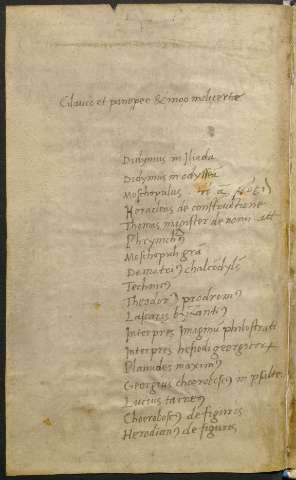 Glauco et panopee & inoo melicertæ
Didymus in Iliada
Didymus in odyssea
Moschopulus
Heraclitus de constructione
Thomas magister de nomi. att
Phrynichꝰ
Moschopuli grā
Demetriꝰ chalcōdyles
Technicꝰ
Theodorꝰ prodromꝰ
Lascaris byzantiꝰ
Interpres Imaginū philostrati
Interpres hesiodi georgicωn
Planudes maximꝰ
Georgius choeroboscꝰ in psalte.
Lucius tarreꝰ
Choeroboscꝰ de figuris
Herodianꝰ de figuris